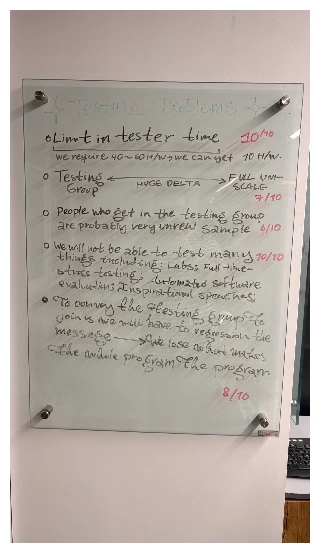 Testing Problems
Limit in tester time 10/10
we require 40~60 H/w, we can get 10 H/w.
Testing Group ← HUGE DELTA → FULL UNI-SCALE
7/10
People who get in the testing group
are probably very unreal sample 6/10
We will not be able to test many
things including: Labs, Full-time 10/10
stress testing, Automated software
evaluations, Inspirational speeches
To convey the testing group to
join us we will have to the
message → We lose
the whole program the program
8/10